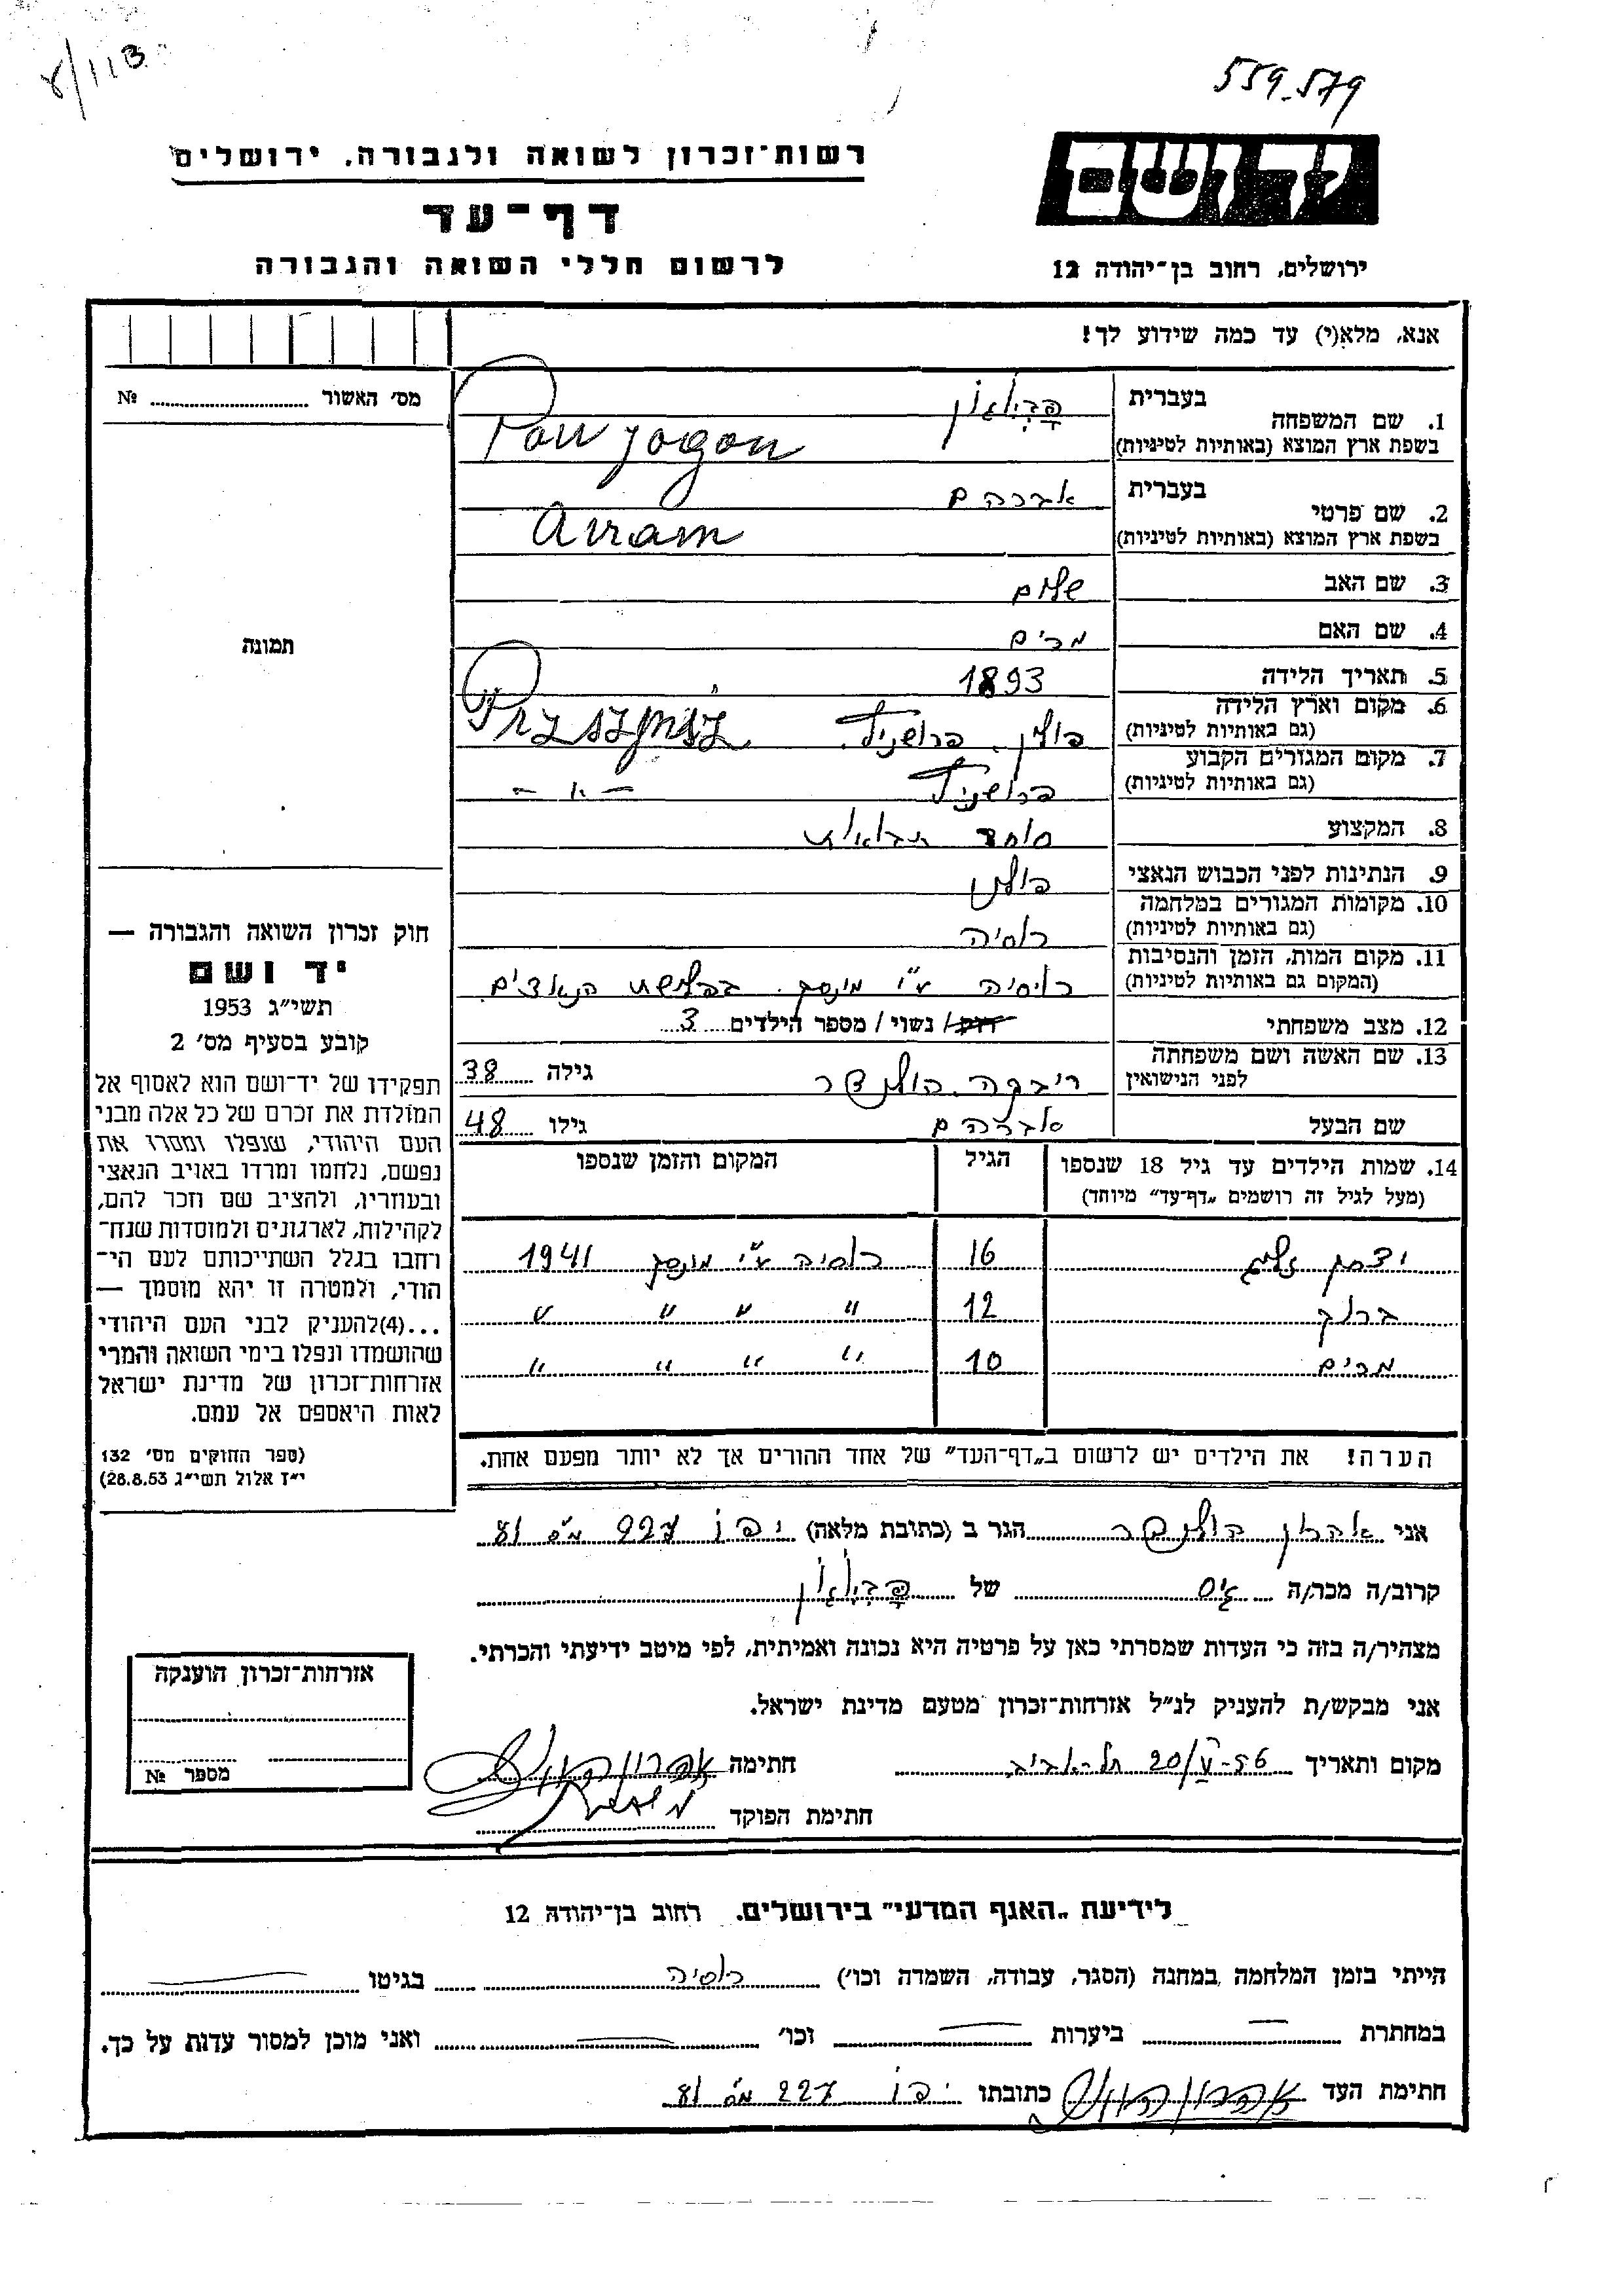 559-579
8/113
יד ושם
רשות־זכרון לשואה ולגבורה, ירושלים
דף־עד
לרשום חללי השואה והגבורה
ירושלים, רחוב בן־יהודה 12
אנא, מלא(י) עד כמה שידוע לך!
מס׳ האשור №
תמונה
1. שם המשפחה בעברית
בשפת ארץ המוצא (באותיות לטיניות) Pawjogon
2. שם פרטי בעברית אברהם
בשפת ארץ המוצא (באותיות לטיניות) Avram
3. שם האב שלום
4. שם האם מרים
5. תאריך הלידה 1893
6. מקום וארץ הלידה (גם באותיות לטיניות) פולין. פרושניץ
7. מקום המגורים הקבוע (גם באותיות לטיניות) פרושניץ — ״ —
8. המקצוע סוחר תבואות
9. הנתינות לפני הכבוש הנאצי פולני
10. מקומות המגורים במלחמה (גם באותיות לטיניות) רוסיה
11. מקום המות, הזמן והנסיבות (המקום גם באותיות לטיניות) רוסיה ע״י מינסק. בפלישת הנאצים.
12. מצב משפחתי רווק / נשוי / מספר הילדים 3
13. שם האשה ושם משפחתה לפני הנישואין ריבקה הולנדר גילה 38
שם הבעל אברהם גילו 48
14. שמות הילדים עד גיל 18 שנספו הגיל המקום והזמן שנספו
(מעל לגיל זה רושמים „דף־עד״ מיוחד)
יצחק זליג 16 רוסיה ע״י מינסק 1941
ברוך 12 ״ ״ ״ ״
מרים 10 ״ ״ ״ ״
הערה! את הילדים יש לרשום ב„דף־העד״ של אחד ההורים אך לא יותר מפעם אחת.
חוק זכרון השואה והגבורה —
יד ושם
תשי״ג 1953
קובע בסעיף מס׳ 2
תפקידו של יד־ושם הוא לאסוף אל
המולדת את זכרם של כל אלה מבני
העם היהודי, שנפלו ומסרו את
נפשם, נלחמו ומרדו באויב הנאצי
ובעוזריו, ולהציב שם וזכר להם,
לקהילות, לארגונים ולמוסדות שנח־
רבו בגלל השתייכותם לעם הי־
הודי, ולמטרה זו יהא מוסמך —
...(4)להעניק לבני העם היהודי
שהושמדו ונפלו בימי השואה והמרי
אזרחות־זכרון של מדינת ישראל
לאות היאספם אל עמם.
(ספר החוקים מס׳ 132
י״ז אלול תשי״ג 28.8.53)
אני אהרון הולנדר הגר ב (כתובת מלאה) יפו 227 מס 81
קרוב/ה מכר/ה גיס של
מצהיר/ה בזה כי העדות שמסרתי כאן על פרטיה היא נכונה ואמיתית, לפי מיטב ידיעתי והכרתי.
אני מבקש/ת להעניק לנ״ל אזרחות־זכרון מטעם מדינת ישראל.
מקום ותאריך תל-אביב 20/V-56 חתימה
חתימת הפוקד
אזרחות־זכרון הוענקה
מספר №
לידיעת „האגף המדעי״ בירושלים. רחוב בן־יהודה 12
הייתי בזמן המלחמה במחנה (הסגר, עבודה, השמדה וכו׳) רוסיה בגיטו
במחתרת ביערות וכו׳ ואני מוכן למסור עדות על כך.
חתימת העד כתובתו יפו 227 מס 81